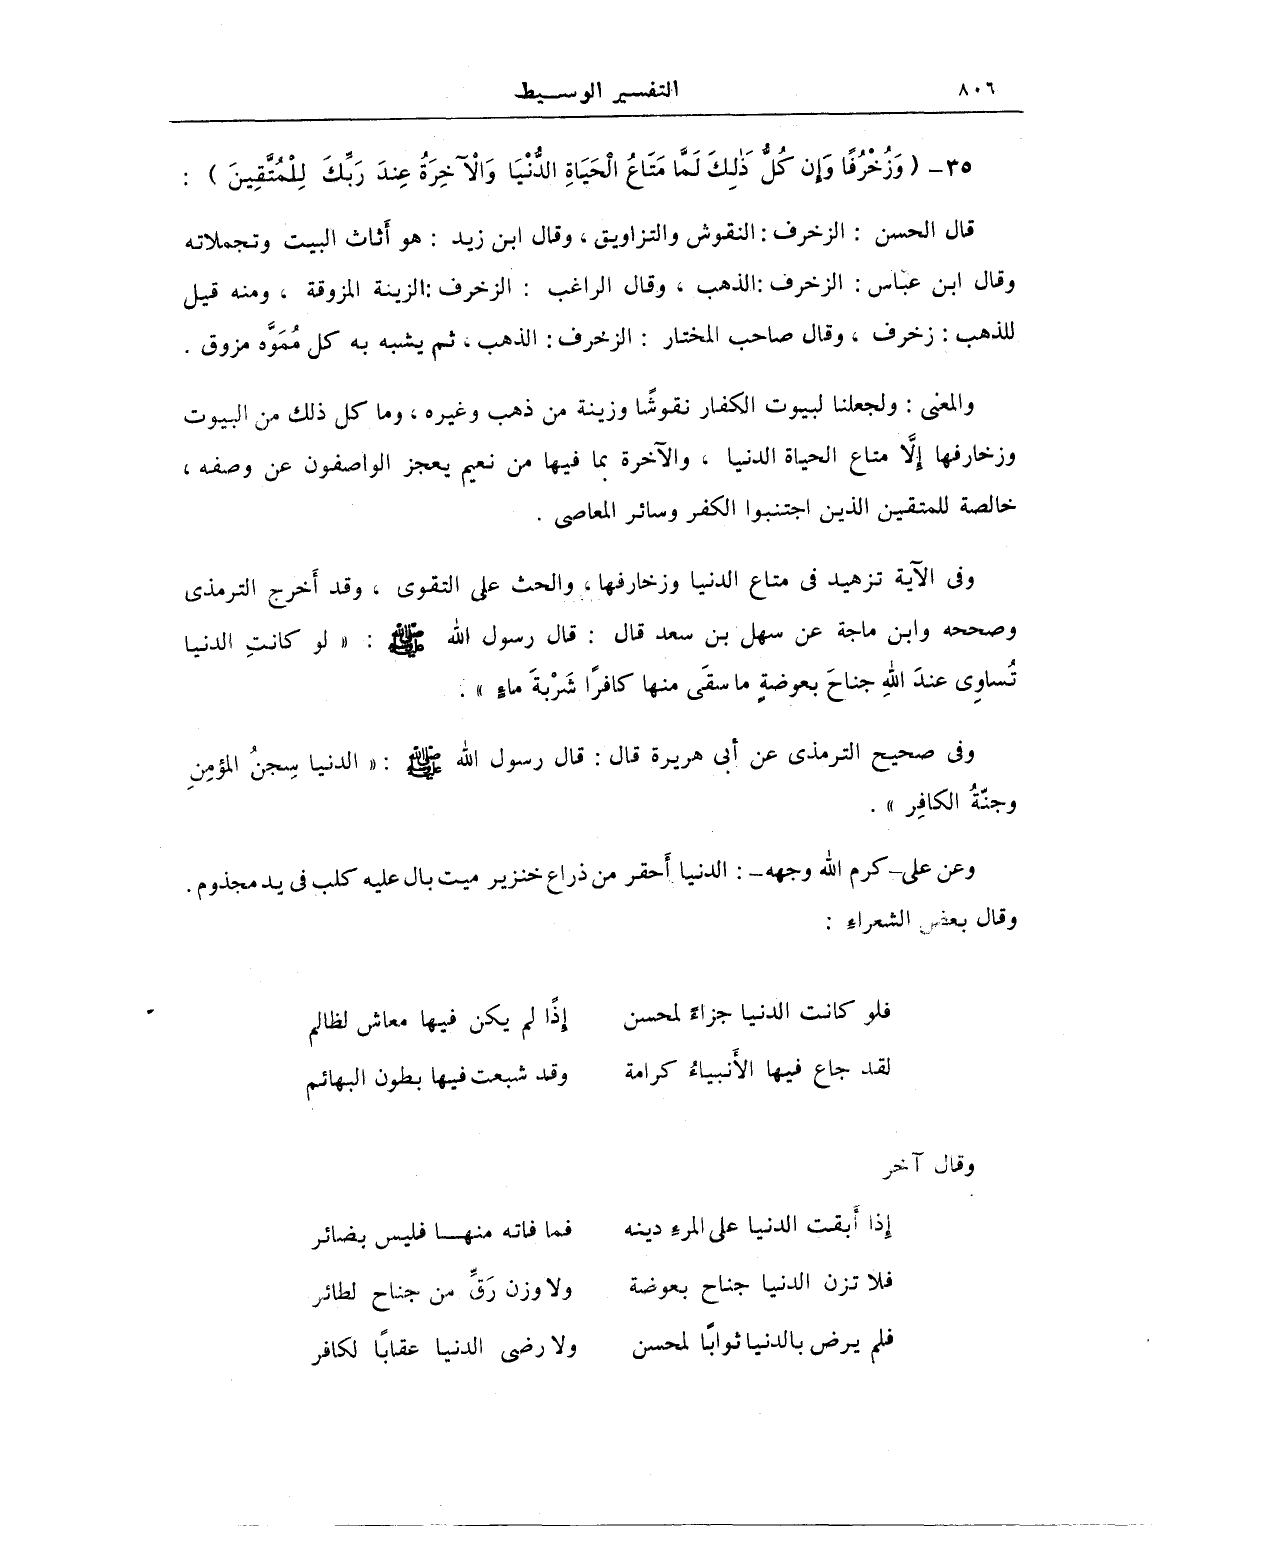 ٨٠٦ التفسير الوسيط
٣٥ـ ( وَزُخْرُفًا وَإِن كُلُّ ذَٰلِكَ لَمَّا مَتَاعُ الْحَيَاةِ الدُّنْيَا وَالْآخِرَةُ عِندَ رَبِّكَ لِلْمُتَّقِينَ ) :
قال الحسن : الزخرف : النقوش والتزاويق ، وقال ابن زيد : هو أثاث البيت وتجملاته
وقال ابن عبّاس : الزخرف : الذهب ، وقال الراغب : الزخرف : الزينة المزوقة ، ومنه قيل
للذهب : زخرف ، وقال صاحب المختار : الزخرف : الذهب ، ثم يشبه به كل مُمَوَّه مزوق .
والمعنى : ولجعلنا لبيوت الكفار نقوشًا وزينة من ذهب وغيره ، وما كل ذلك من البيوت
وزخارفها إلَّا متاع الحياة الدنيا ، والآخرة بما فيها من نعيم يعجز الواصفون عن وصفه ،
خالصة للمتقين الذين اجتنبوا الكفر وسائر المعاصى .
وفى الآية تزهيد فى متاع الدنيا وزخارفها ، والحث على التقوى ، وقد أخرج الترمذى
وصححه وابن ماجة عن سهل بن سعد قال : قال رسول الله ﷺ : « لو كانتِ الدنيا
تُساوِى عندَ اللهِ جناحَ بعوضةٍ ما سقَى منها كافرًا شَرْبةَ ماءٍ » .
وفى صحيح الترمذى عن أبى هريرة قال : قال رسول الله ﷺ : « الدنيا سِجنُ المؤمِنِ
وجنّةُ الكافِرِ » .
وعن على ـ كرم الله وجهه ـ : الدنيا أحقر من ذراع خنزير ميت بال عليه كلب فى يد مجذوم .
وقال بعض الشعراء :
فلو كانت الدنيا جزاءً لمحسن إذًا لم يكن فيها معاش لظالم
لقد جاع فيها الأنبياءُ كرامة وقد شبعت فيها بطون البهائم
وقال آخر
إذا أبقت الدنيا على المرء دينه فما فاته منهـا فليس بضائر
فلا تزن الدنيا جناح بعوضة ولا وزن رَقٍّ من جناح لطائر
فلم يرض بالدنيا ثوابًا لمحسن ولا رضى الدنيا عقابًا لكافر